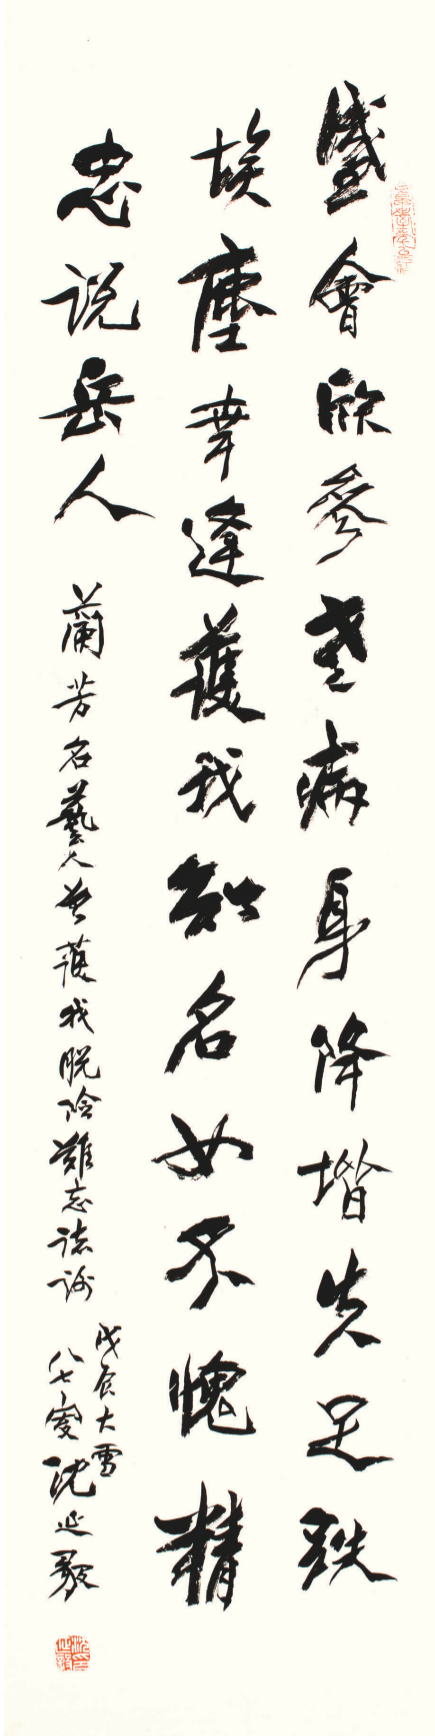 盛會欣参老病身降堦失足跌
埃塵幸逢護我知名女不愧精
忠説岳人
蘭芳名藝人曾護我脱险難忘誌谢
戊辰大雪
八七叟沈延毅